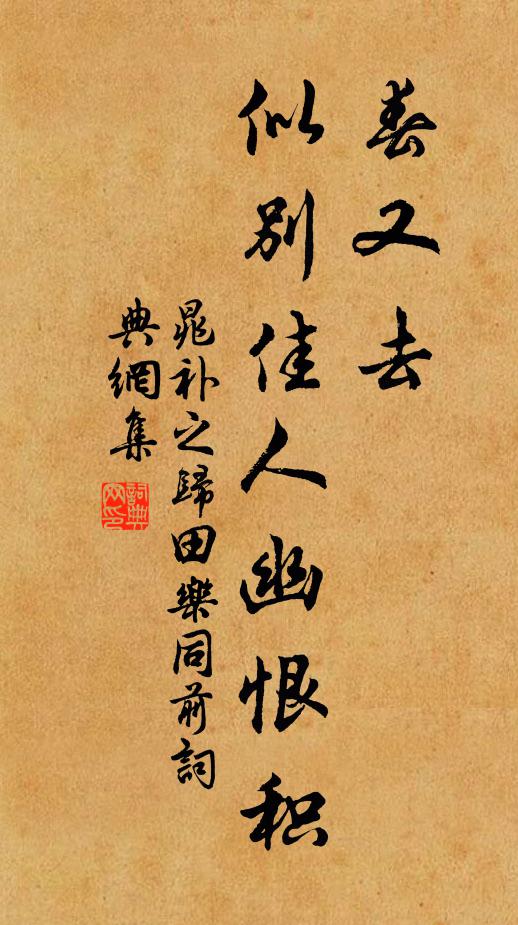 春又去
似别佳人幽恨积
晁补之歸田樂同前詞
典網集
詞典網印